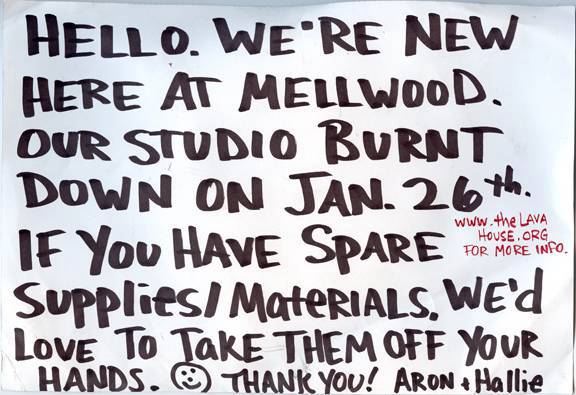 HELLO. WE'RE NEW
HERE AT MELLWOOD.
OUR STUDIO BURNT
DOWN ON JAN. 26th.
www.theLAVA
HOUSE.ORG
FOR MORE INFO.
IF YOU HAVE SPARE
Supplies/MateRIALS. WE'd
LOVE TO TaKE THEM OFF YOUR
HANDS. ☺ THANK YOU! ARON + Hallie